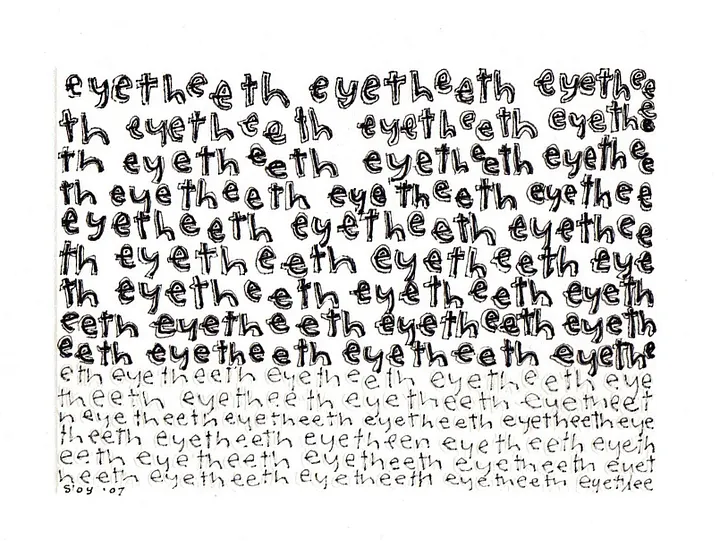 eyetheeth eyetheeth eyethee
th eyetheeth eyetheeth eyethe
th eyetheeth eyetheeth eyethee
th eyetheeth eyetheeth eyethee
eyetheeth eyetheeth eyethee
th eyetheeth eyetheeth eye
th eyetheeth eyetheeth eyeth
eeth eyetheeth eyetheeth eyeth
eeth eyetheeth eyetheeth eyethe
eth eyetheeth eyetheeth eyetheeth eye
theeth eyetheeth eyetheeth eyetheet
h eyetheeth eyetheeth eyetheeth eyetheetheye
theeth eyetheeth eyetheen eyetheeth eyeth
eeth eyetheeth eyetheeth eyetheeth eyet
heeth eyetheeth eyetheeth eyetheeth eyethee
S'oy '07